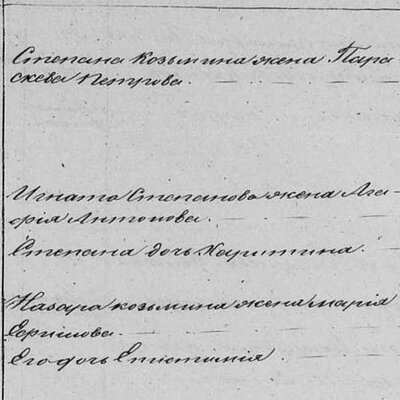 Степана Козьмина жена Пара
скева Петрова.
Игната Степанова жена Ага-
фія Антонова.
Степана дочь Харитина.
Назара Козьмина жена марія
Его дочь Епистимія.